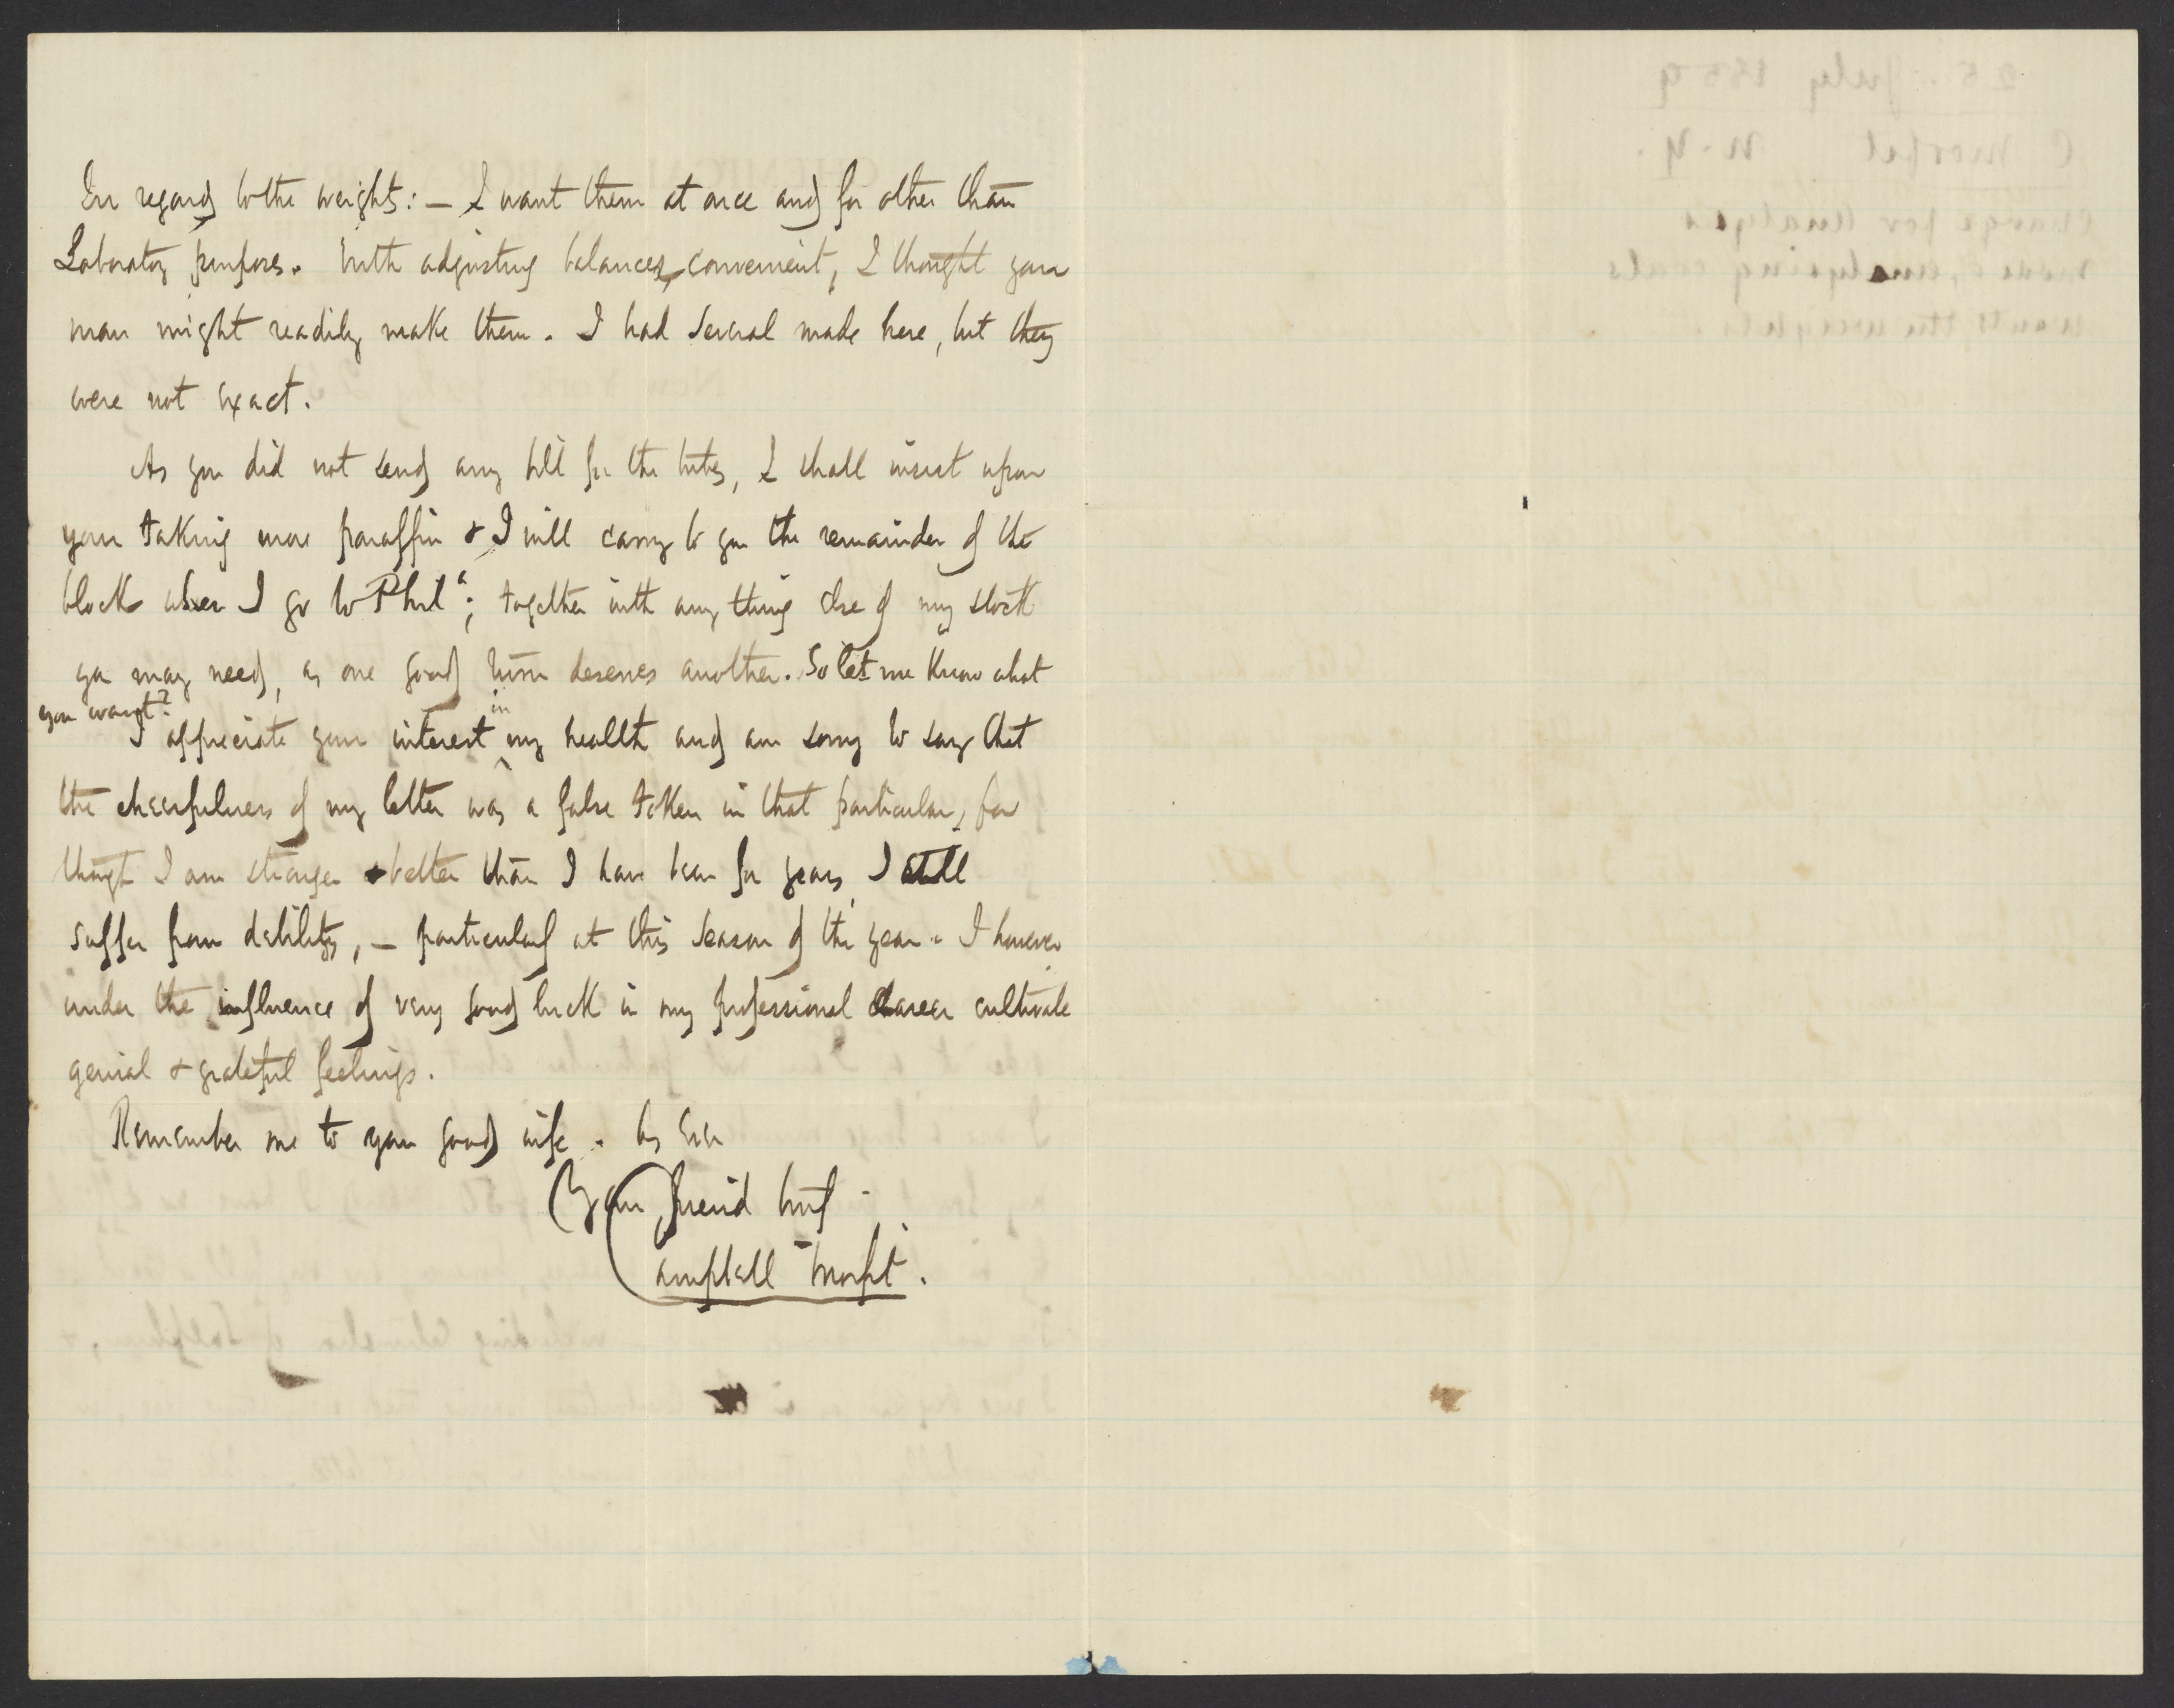 In regard to the weights: — I want them at once and for other than
Laboratory purposes. With adjusting balances, convenient, I thought your
man might readily make them. I had several made here, but they
were not exact.
As you did not send any bill for the tubes, I shall insist upon
your taking more paraffin & I will carry to you the remainder of the
block when I go to Phila; together with any thing else of my stock
you may need, as one good turn deserves another. So let me know what
you want?
I appreciate your interest in my health and am sorry to say that
the cheerfulness of my letter was a false token in that particular, for
though I am stronger & better than I have been for years, I still
suffer from debility, — particularly at this season of the year. I however
under the influence of very good luck in my professional career cultivate
genial & grateful feelings.
Remember me to your good wife. As ever
Your friend truly
Campbell Morfit.
25 July 1859
C Morfit N.Y.
Charge for Analyses
mode of analysing coals
wants the weights.